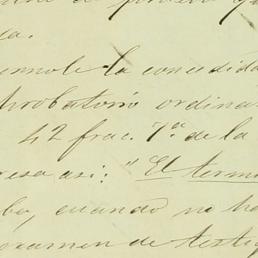 sa.
la concedida
probatorio ordina
42 frac. 7a de la
resa asi: "El termi
bo, cuando no ha
examen de testig